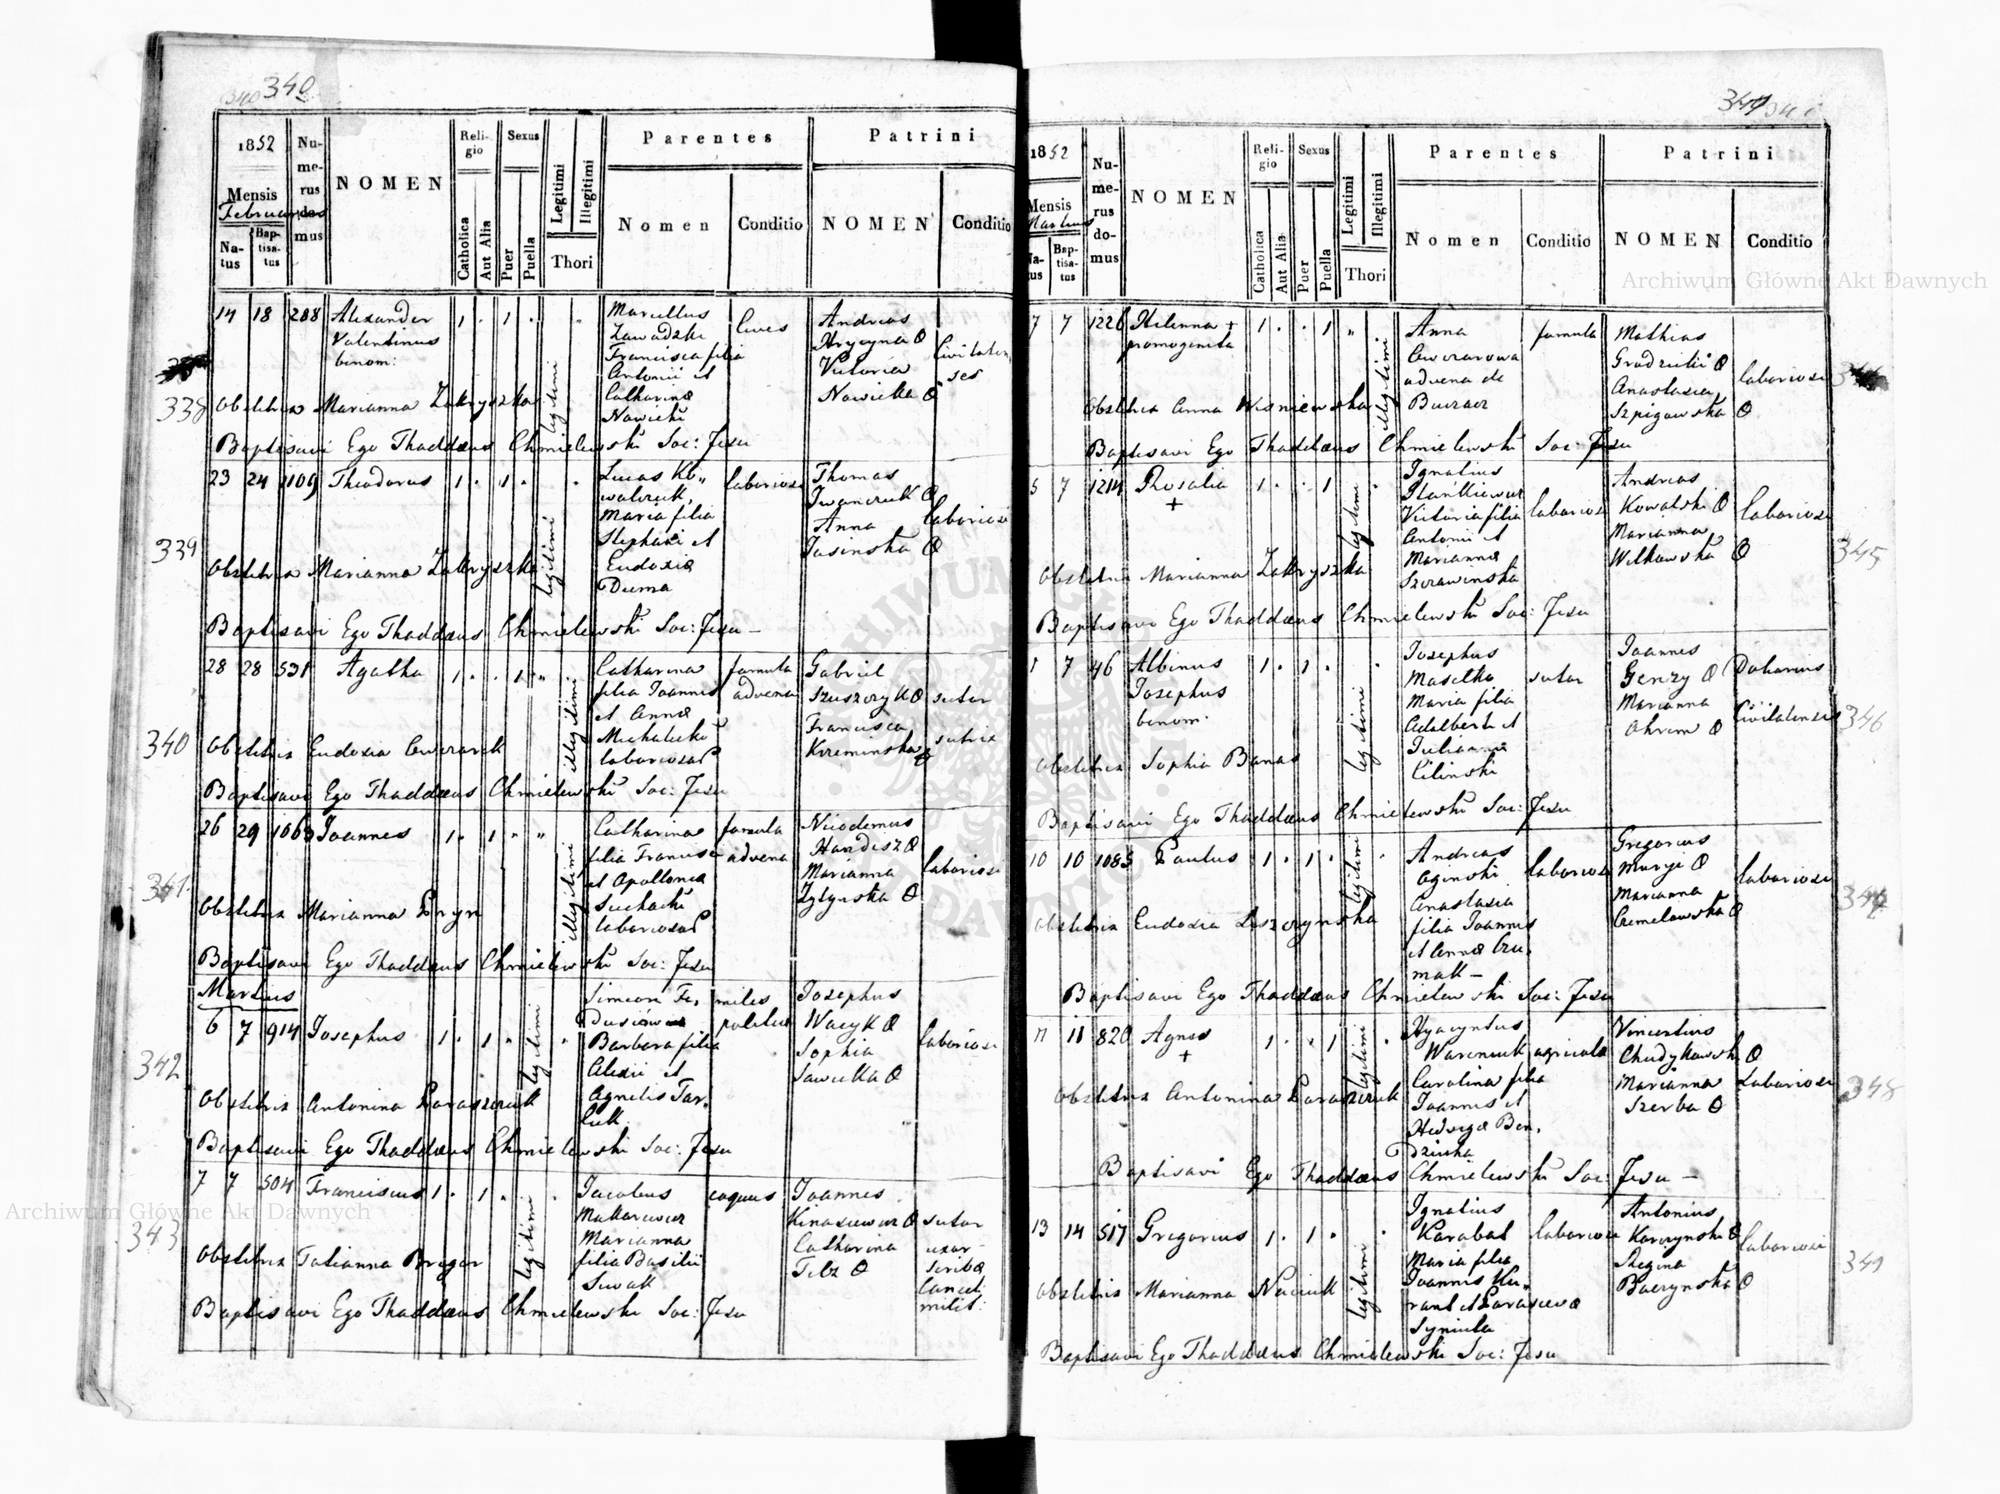 340 340
1852
Mensis
Februarius
Na-
tus
Bap-
tisa-
tus
Nu-
me-
rus
do-
mus
NOMEN
Reli-
gio
Catholica
Aut Alia
Sexus
Puer
Puella
Legitimi
Illegitimi
Thori
Parentes
Nomen
Conditio
Patrini
NOMEN
Conditio
338
14 18 288 Alexander 1 . 1 . legitimi
Valentinus
binom:
Marcellus
Zawadzki
Francisca filia
Antonii et
Catharina
Nowicki
Cives
Andreas
Hrycyna
Victoria
Nowicka
Civitaten
ses
Obstetrix Marianna Zakryszka
Baptisavi Ego Thaddæus Chmielewski Soc: Jesu
339
23 24 1109 Theodorus 1 . 1 . legitimi
Lucas Ko„
walczuk,
Maria filia
Stephani et
Eudoxia
Duma
laboriosi
Thomas
Iwanczuk
Anna
Jasinska
laboriosi
Obstetrix Marianna Zakryszka
Baptisavi Ego Thaddæus Chmielewski Soc: Jesu
340
28 28 531 Agatha 1 . . 1 illegitimi
Catharina
filia Joannis
et Anna
Michalicki
laboriosa
famula
advena
Gabriel
Szuszczyk
Francisca
Krzeminska
sutor
sutrix
Obstetrix Eudoxia Owczaruk
Baptisavi Ego Thaddæus Chmielewski Soc: Jesu
341
26 29 1063 Joannes 1 . 1 illegitimi
Catharina
filia Francisci
et Apollonia
Suchacki
laboriosa
famula
advena
Nicodemus
Handisz
Marianna
Zylynska
laboriosi
Obstetrix Marianna Pryn
Baptisavi Ego Thaddæus Chmielewski Soc: Jesu
342
Martius
6 7 914 Josephus 1 . 1 legitimi
Simeon Fe,
Barbara filia
Alexii et
Agnetis Tar,
miles
Josephus
Wacyk
Sophia
Sawicka
laboriosi
Obstetrix Antonina Paraszczuk
Baptisavi Ego Thaddæus Chmielewski Soc: Jesu
343
7 7 504 Franciscus 1 . 1 . legitimi
Jacobus
Makarewicz
Marianna
filia Basilii
Siwak
coquus
Joannes
Kinasiewicz
Catharina
Telz
sutor
uxor
scribæ
Cancel
milit:
Obstetrix Tatianna Bregar
Baptisavi Ego Thaddæus Chmielewski Soc: Jesu
341
1852
Mensis
Martius
Na-
tus
Bap-
tisa-
tus
Nu-
me-
rus
do-
mus
NOMEN
Reli-
gio
Catholica
Aut Alia
Sexus
Puer
Puella
Legitimi
Illegitimi
Thori
Parentes
Nomen
Conditio
Patrini
NOMEN
Conditio
7 7 1226 Helenna + 1 . . 1 illegitimi
primogenita
Anna
Owczarowa
advena de
Buczacz
famula
Mathias
Grodzicki
Anastasia
Szpigowska
laboriosi
Obstetrix Anna Wisniewska
Baptisavi Ego Thaddæus Chmielewski Soc: Jesu
345
5 7 1214 Rosalia 1 . . 1 legitimi
+
Ignatius
Stankiewicz
Victoria filia
Antonii et
Marianna
Szerawinska
laboriosi
Andreas
Kowalski
Marianna
Witkowska
laboriosi
Obstetrix Marianna Zakryszka
Baptisavi Ego Thaddæus Chmielewski Soc: Jesu
346
1 7 46 Albinus 1 . 1 . legitimi
Josephus
binom:
Josephus
Maselko
Maria filia
Adalberti et
Julianna
Cilinski
sutor
Joannes
Genzy
Marianna
Ohrim
Doliarius
Civitatensis
Obstetrix Sophia Banas
Baptisavi Ego Thaddæus Chmielewski Soc: Jesu
347
10 10 1085 Paulus 1 . 1 . legitimi
Andreas
Oginski
Anastasia
filia Joannis
et Anna Czu,
mak
laboriosi
Gregorius
Muryi
Marianna
Czemelowska
laboriosi
Obstetrix Eudoxia Leszczynska
Baptisavi Ego Thaddæus Chmielewski Soc: Jesu
348
11 11 820 Agnes 1 . . 1 legitimi
+
Hyacyntus
Wareniuk
Carolina filia
Joannis et
Hedvigæ Ben,
dzinska
agricola
Vincentius
Chudykowski
Marianna
Szerba
Laboriosi
Obstetrix Antonina Paraszczuk
Baptisavi Ego Thaddæus Chmielewski Soc: Jesu
349
13 14 517 Gregorius 1 . 1 . legitimi
Ignatius
Karabat
Maria filia
Joannis Ku,
Syniuta
laboriosi
Antonius
Karczynski
Regina
Baczynska
laboriosi
Obstetrix Marianna Naciuk
Baptisavi Ego Thaddæus Chmielewski Soc: Jesu
Archiwum Główne Akt Dawnych
Archiwum Główne Akt Dawnych